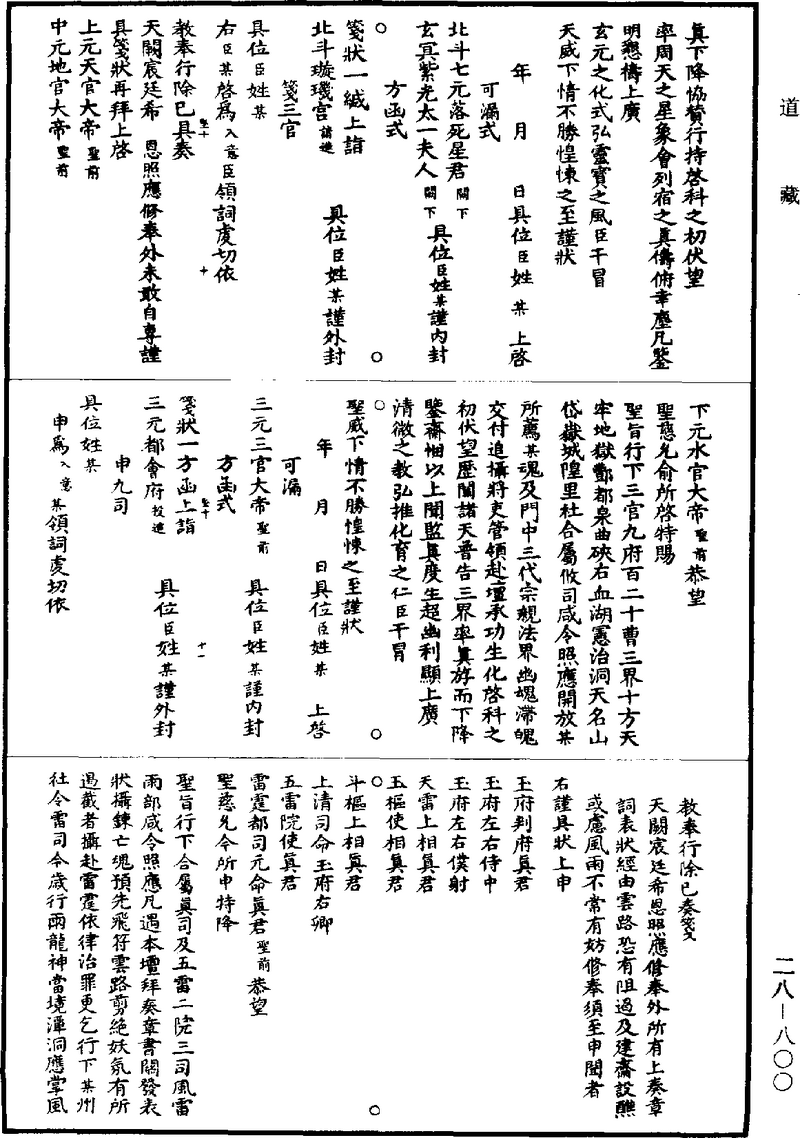 道藏
眞下降協賛行持啓科之初伏望
率周天之星象會列宿之真儔俯幸塵凡鑒
明懇禱上廣
玄元之化式弘靈寶之風臣干冒
天威下情不勝惶悚之至謹狀
年 月 日具位臣姓 某 上啓
可漏式
北斗七元落死星君 閤下
玄冥紫光太一夫人 閤下 具位臣姓某謹內封
方函式
箋狀一緘上詣
北斗璇璣宮 請進 具位臣姓某謹外封
箋三官
具位臣姓某
右臣某啓爲 入意 臣領詞虔切依
教奉行除已具奏
天闕宸廷希 恩照應修奉外未敢自專謹
具箋狀再拜上啓
上元天官大帝 聖前
中元地官大帝 聖前
下元水官大帝 聖前 恭望
聖慈允俞所啓特賜
聖旨行下三官九府百二十曹三界十方天
牢地獄酆都泉曲硤石血湖憲治洞天名山
岱嶽城隍里社合屬攸司咸令照應開放某
所薦某魂及門中三代宗親法界幽魂滯魄
交付追攝將吏管領赴壇承功生化啓科之
初伏望歷聞諸天普告三界率眞斿而下降
鑒齋悃以上聞監真度生超幽利顯上廣
清微之教弘推化育之仁臣干冒
聖威下情不勝惶悚之至謹狀
年 月 日具位臣姓某 上啓
可漏
三元三官大帝 聖前 具位臣姓某謹內封
方函式
箋狀一方函上詣
三元都會府 投進 具位臣姓某謹外封
申九司
具位姓某
申爲 入意 某領詞虔切依
教奉行除已奏箋
天闕宸廷希恩照應修奉外所有上奏章
詞表狀經由雲路恐有阻遏及建齋設醮
或慮風雨不常有妨修奉須至申聞者
右謹具狀上申
玉府判府眞君
玉府左右侍中
玉府左右僕射
天雷上相眞君
玉樞使相眞君
斗樞上相眞君
上清司命玉府右卿
五雷院使眞君
雷霆都司元命眞君 聖前 恭望
聖慈允令所申特降
聖旨行下合屬眞司及五雷二院三司風雷
雨部咸令照應凡遇本壇拜奏章書關發表
狀攝鍊亡魂預先飛符雲路剪絕妖氛有所
遏截者攝赴雷霆依律治罪更乞行下某州
社令雷司令歲行雨龍神當境潭洞應掌風
二八—八〇〇